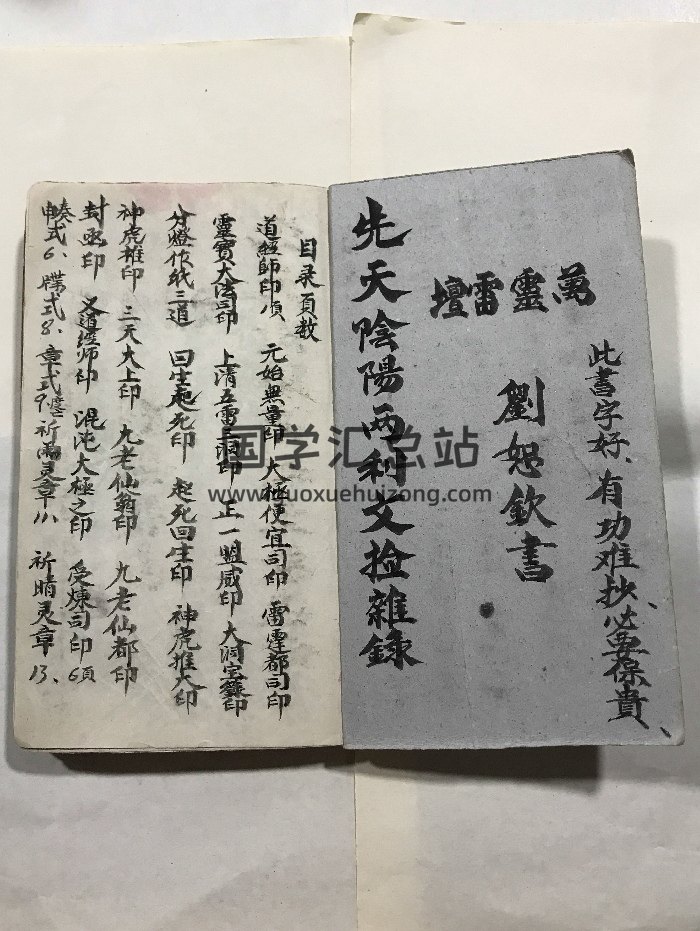 此書字好、有功难抄、必要保貴、
萬靈雷壇
劉恕欽書
先天陰陽両利文捡雜錄
目录頁数
道經師印頂 元始無量印 大極便宜司印 雷霆都司印
靈寶大法司印 上清五雷三洞印 正一盟威印 大洞宝籙印
分燈作紙三道 回生起死印 起死回生印 神虎推大印
神虎推印 三天大上印 九老仙翁印 九老仙都印
封函印 又道經师印 混沌大極之印 受煉司印6頂
奏式6、牒式8、章式9、 祈雨灵章11、祈晴灵章13、
国学汇总站
www.guoxuehuizong.com